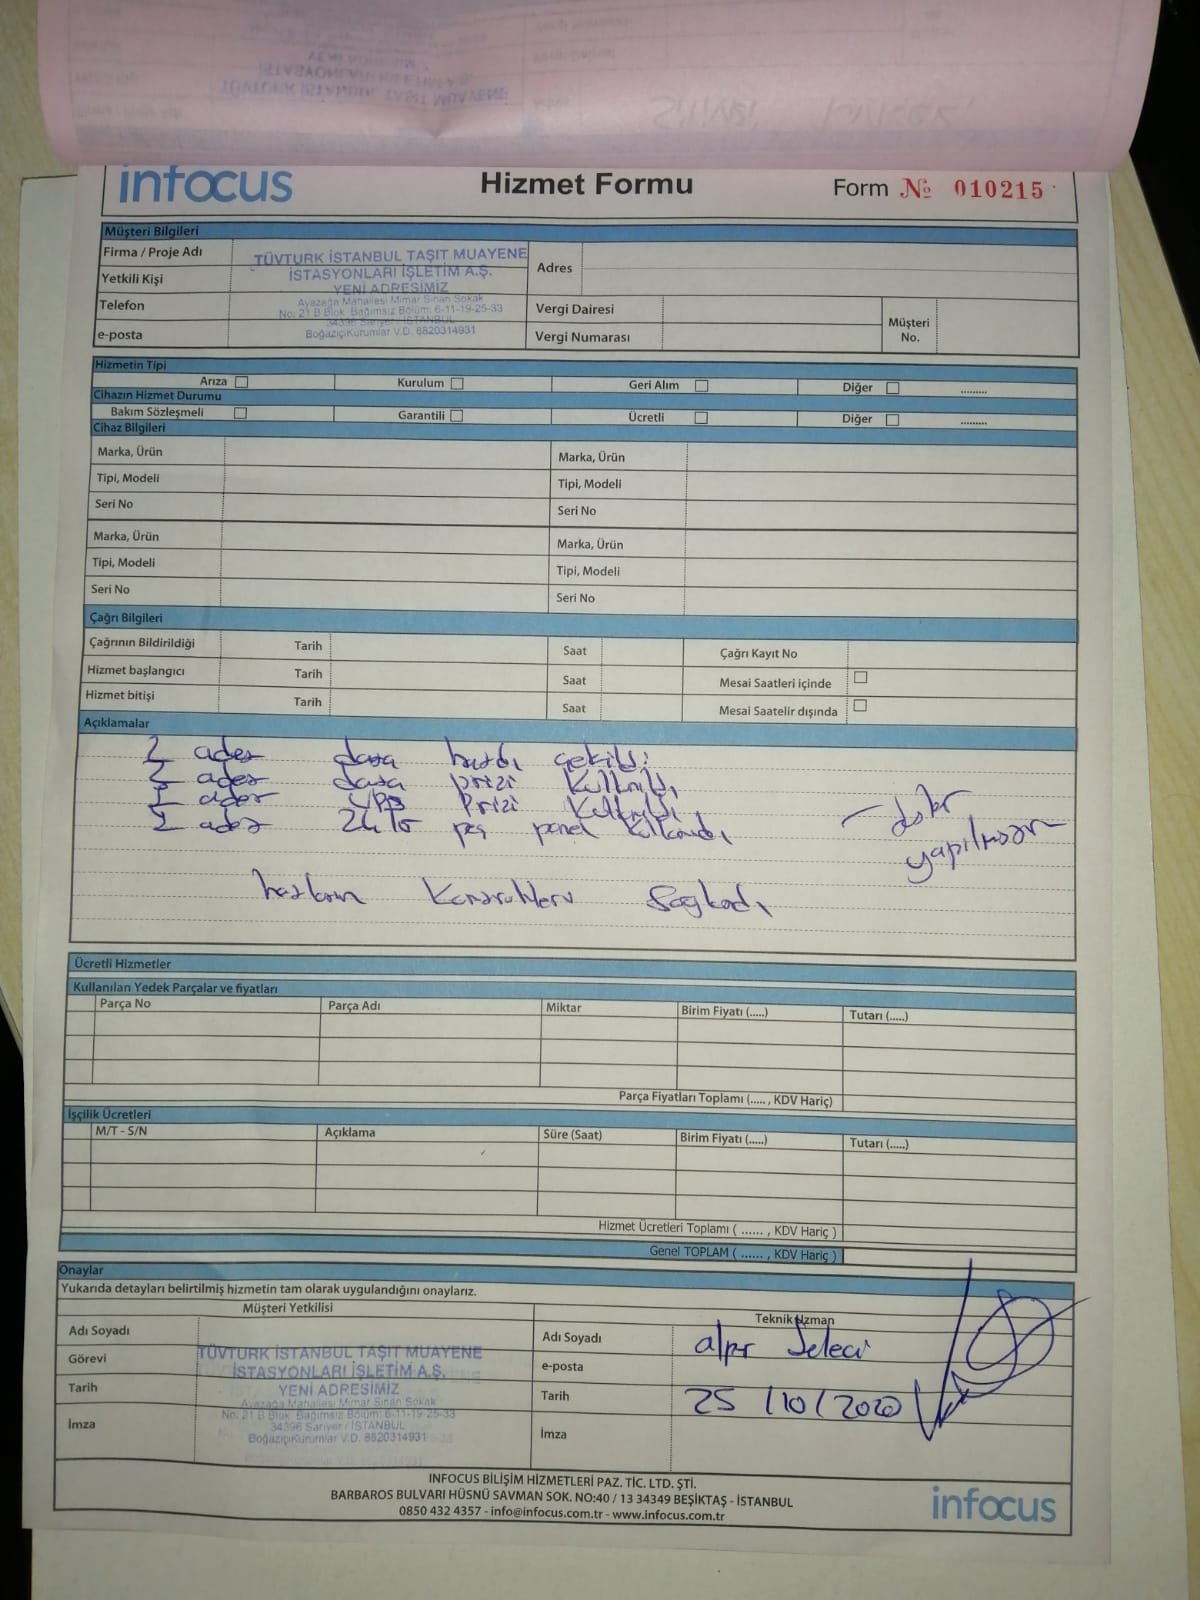 infocus
Hizmet Formu
Form № 010215
Müşteri Bilgileri
Firma / Proje Adı
TÜVTURK İSTANBUL TAŞIT MUAYENE
İSTASYONLARI İŞLETİM A.Ş.
YENİ ADRESİMİZ
Ayazağa Mahallesi Mimar Sinan Sokak
No: 21 B Blok Bağımsız Bölüm: 6-11-19-25-33
34396 Sarıyer / İSTANBUL
BoğaziçiKurumlar V.D. 8820314931
Adres
Yetkili Kişi
Telefon
Vergi Dairesi
Müşteri No.
e-posta
Vergi Numarası
Hizmetin Tipi
Arıza Kurulum Geri Alım Diğer .........
Cihazın Hizmet Durumu
Bakım Sözleşmeli Garantili Ücretli Diğer .........
Cihaz Bilgileri
Marka, Ürün Marka, Ürün
Tipi, Modeli Tipi, Modeli
Seri No Seri No
Marka, Ürün Marka, Ürün
Tipi, Modeli Tipi, Modeli
Seri No Seri No
Çağrı Bilgileri
Çağrının Bildirildiği Tarih Saat Çağrı Kayıt No
Hizmet başlangıcı Tarih Saat Mesai Saatleri içinde
Hizmet bitişi Tarih Saat Mesai Saatelir dışında
Açıklamalar
2 adet data hattı çekildi
2 adet data prizi kullanıldı
adet UPS Prizi kullanıldı
adet 24 peç panel kullanıldı
yapılmıştır
hatların sağlandı
Ücretli Hizmetler
Kullanılan Yedek Parçalar ve fiyatları
Parça No Parça Adı Miktar Birim Fiyatı (.....) Tutarı (.....)
Parça Fiyatları Toplamı (..... , KDV Hariç)
İşçilik Ücretleri
M/T - S/N Açıklama Süre (Saat) Birim Fiyatı (.....) Tutarı (.....)
Hizmet Ücretleri Toplamı ( ...... , KDV Hariç )
Genel TOPLAM ( ...... , KDV Hariç )
Onaylar
Yukarıda detayları belirtilmiş hizmetin tam olarak uygulandığını onaylarız.
Müşteri Yetkilisi
Adı Soyadı
Görevi
Tarih
İmza
TÜVTURK İSTANBUL TAŞIT MUAYENE
İSTASYONLARI İŞLETİM A.Ş.
YENİ ADRESİMİZ
Ayazağa Mahallesi Mimar Sinan Sokak
No: 21 B Blok Bağımsız Bölüm: 6-11-19-25-33
34396 Sarıyer / İSTANBUL
BoğaziçiKurumlar V.D. 8820314931
Teknik Uzman
Adı Soyadı
e-posta
Tarih 25/10/2020
İmza
INFOCUS BİLİŞİM HİZMETLERİ PAZ. TİC. LTD. ŞTİ.
BARBAROS BULVARI HÜSNÜ SAVMAN SOK. NO:40 / 13 34349 BEŞİKTAŞ - İSTANBUL
0850 432 4357 - info@infocus.com.tr - www.infocus.com.tr
infocus